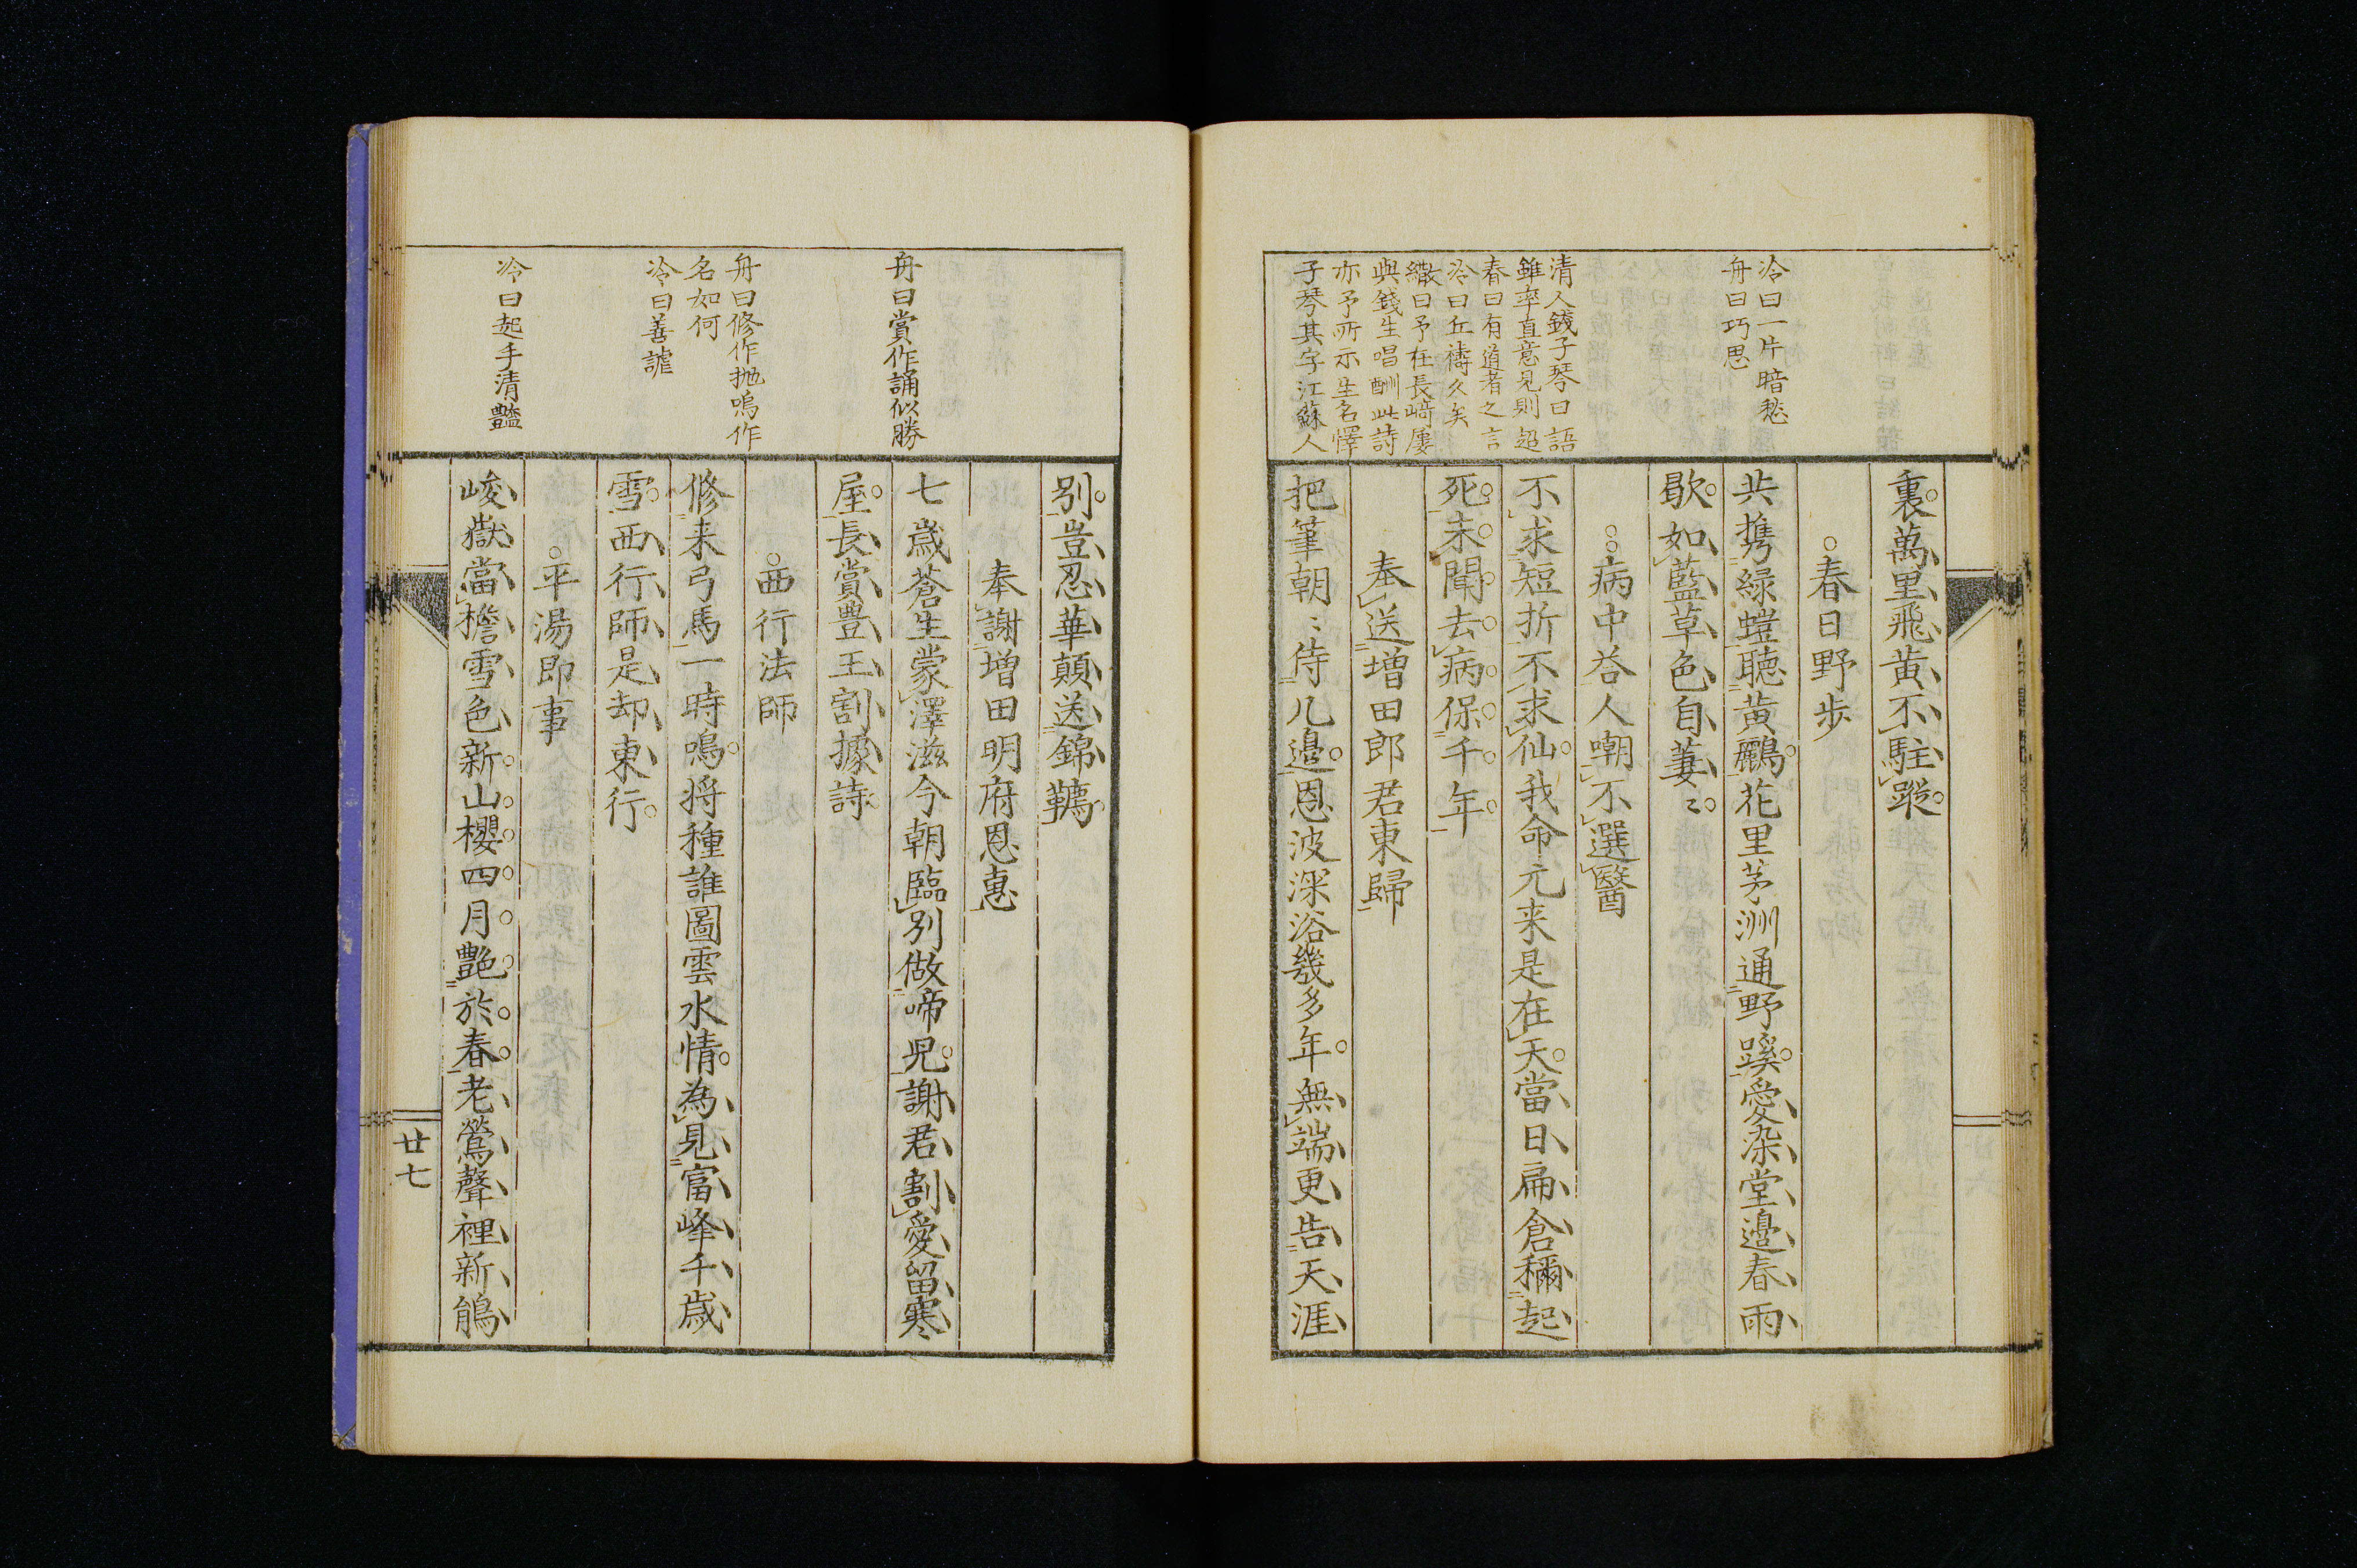 冷曰一片暗愁
舟曰巧思
清人錢子琴曰語
雖率直意見則超
春曰有道者之言
冷曰丘禱久矣
繖曰予在長﨑屢
與錢生唱酬此詩
亦予所示生名懌
子琴其字江蘇人
裏萬里飛黄不駐蹤
春日野歩
共攜緑螘聴黄鸝花里茅洲通野蹊愛染堂邊春雨
歇如藍草色自萋〻
病中荅人嘲不選醫
不求短折不求仙我命元来是在天當日扁倉稱起
死未聞去病保千年
奉送増田郎君東歸
把筆朝〻侍几邊恩波深浴幾多年無端更告天涯
舟曰賞作誦似勝
舟曰修作抛鳴作
名如何
冷曰善謔
冷曰起手清豔
別豈忍華顛送錦韉
奉謝増田明府恩惠
七歳蒼生蒙澤滋今朝臨別做啼児謝君割愛留寒
屋長賞豊王割據詩
西行法師
修来弓馬一時鳴将種誰圖雲水情為見富峰千歳
雪西行師是却東行
平湯即事
峻嶽當檐雪色新山櫻四月艶於春老鶯聲裡新鵑
廿七